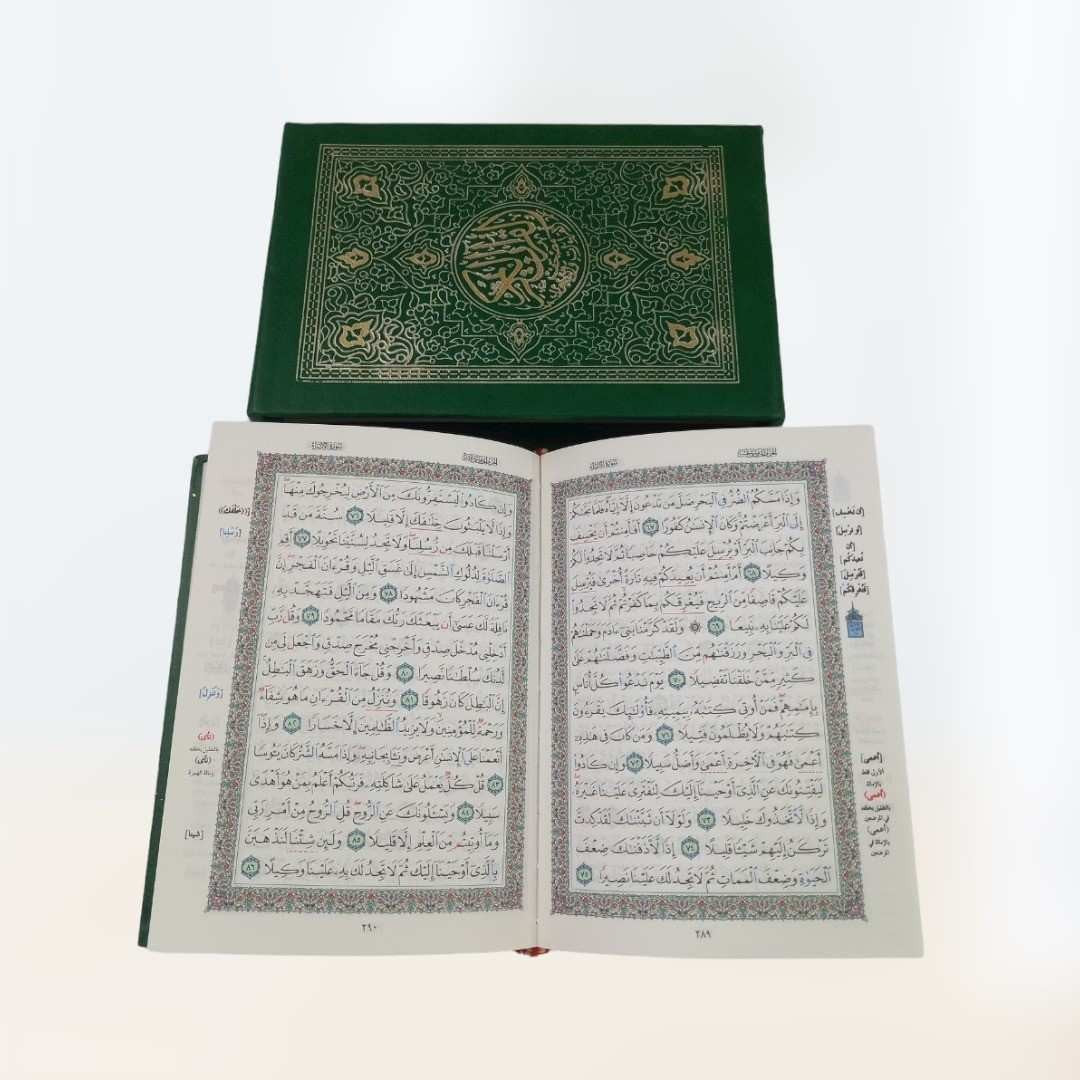 القرآن الكريم
سورة الإسراء
وَإِذَا مَسَّكُمُ الضُّرُّ فِي الْبَحْرِ ضَلَّ مَن تَدْعُونَ إِلَّا إِيَّاهُ فَلَمَّا نَجَّىٰكُمْ
إِلَى الْبَرِّ أَعْرَضْتُمْ وَكَانَ الْإِنسَٰنُ كَفُورًا ٦٧ أَفَأَمِنتُمْ أَن يَخْسِفَ
بِكُمْ جَانِبَ الْبَرِّ أَوْ يُرْسِلَ عَلَيْكُمْ حَاصِبًا ثُمَّ لَا تَجِدُوا لَكُمْ
وَكِيلًا ٦٨ أَمْ أَمِنتُمْ أَن يُعِيدَكُمْ فِيهِ تَارَةً أُخْرَىٰ فَيُرْسِلَ
عَلَيْكُمْ قَاصِفًا مِّنَ الرِّيحِ فَيُغْرِقَكُم بِمَا كَفَرْتُمْ ثُمَّ لَا تَجِدُوا
لَكُمْ عَلَيْنَا بِهِ تَبِيعًا ٦٩ ۞ وَلَقَدْ كَرَّمْنَا بَنِي ءَادَمَ وَحَمَلْنَٰهُمْ
فِي الْبَرِّ وَالْبَحْرِ وَرَزَقْنَٰهُم مِّنَ الطَّيِّبَٰتِ وَفَضَّلْنَٰهُمْ عَلَىٰ
كَثِيرٍ مِّمَّنْ خَلَقْنَا تَفْضِيلًا ٧٠ يَوْمَ نَدْعُوا كُلَّ أُنَاسٍ
بِإِمَٰمِهِمْ فَمَنْ أُوتِيَ كِتَٰبَهُ بِيَمِينِهِ فَأُولَٰئِكَ يَقْرَءُونَ
كِتَٰبَهُمْ وَلَا يُظْلَمُونَ فَتِيلًا ٧١ وَمَن كَانَ فِي هَٰذِهِ
أَعْمَىٰ فَهُوَ فِي الْآخِرَةِ أَعْمَىٰ وَأَضَلُّ سَبِيلًا ٧٢ وَإِن كَادُوا
لَيَفْتِنُونَكَ عَنِ الَّذِي أَوْحَيْنَا إِلَيْكَ لِتَفْتَرِيَ عَلَيْنَا غَيْرَهُ
وَإِذًا لَّاتَّخَذُوكَ خَلِيلًا ٧٣ وَلَوْلَا أَن ثَبَّتْنَٰكَ لَقَدْ كِدتَّ
تَرْكَنُ إِلَيْهِمْ شَيْئًا قَلِيلًا ٧٤ إِذًا لَّأَذَقْنَٰكَ ضِعْفَ
الْحَيَوٰةِ وَضِعْفَ الْمَمَاتِ ثُمَّ لَا تَجِدُ لَكَ عَلَيْنَا نَصِيرًا ٧٥
[أن نخسف]
[أو نرسل]
[أن
نعيدكم]
[فنرسل]
[فنغرقكم]
[أعمى]
الأول فقط
بالإمالة
(أعمى)
بالتقليل بخلفه
في الموضعين
(أعمى)
بالإمالة في
الموضعين
٢٨٩
سورة الإسراء
وَإِن كَادُوا لَيَسْتَفِزُّونَكَ مِنَ الْأَرْضِ لِيُخْرِجُوكَ مِنْهَا
وَإِذًا لَّا يَلْبَثُونَ خِلَٰفَكَ إِلَّا قَلِيلًا ٧٦ سُنَّةَ مَن قَدْ
أَرْسَلْنَا قَبْلَكَ مِن رُّسُلِنَا وَلَا تَجِدُ لِسُنَّتِنَا تَحْوِيلًا ٧٧ أَقِمِ
الصَّلَوٰةَ لِدُلُوكِ الشَّمْسِ إِلَىٰ غَسَقِ الَّيْلِ وَقُرْءَانَ الْفَجْرِ إِنَّ
قُرْءَانَ الْفَجْرِ كَانَ مَشْهُودًا ٧٨ وَمِنَ الَّيْلِ فَتَهَجَّدْ بِهِ
نَافِلَةً لَّكَ عَسَىٰ أَن يَبْعَثَكَ رَبُّكَ مَقَامًا مَّحْمُودًا ٧٩ وَقُل رَّبِّ
أَدْخِلْنِي مُدْخَلَ صِدْقٍ وَأَخْرِجْنِي مُخْرَجَ صِدْقٍ وَاجْعَل لِّي مِن
لَّدُنكَ سُلْطَٰنًا نَّصِيرًا ٨٠ وَقُلْ جَاءَ الْحَقُّ وَزَهَقَ الْبَٰطِلُ
إِنَّ الْبَٰطِلَ كَانَ زَهُوقًا ٨١ وَنُنَزِّلُ مِنَ الْقُرْءَانِ مَا هُوَ شِفَاءٌ
وَرَحْمَةٌ لِّلْمُؤْمِنِينَ وَلَا يَزِيدُ الظَّٰلِمِينَ إِلَّا خَسَارًا ٨٢ وَإِذَا
أَنْعَمْنَا عَلَى الْإِنسَٰنِ أَعْرَضَ وَنَـَٔا بِجَانِبِهِ وَإِذَا مَسَّهُ الشَّرُّ كَانَ يَـُٔوسًا
٨٣ قُلْ كُلٌّ يَعْمَلُ عَلَىٰ شَاكِلَتِهِ فَرَبُّكُمْ أَعْلَمُ بِمَنْ هُوَ أَهْدَىٰ
سَبِيلًا ٨٤ وَيَسْـَٔلُونَكَ عَنِ الرُّوحِ قُلِ الرُّوحُ مِنْ أَمْرِ رَبِّي
وَمَا أُوتِيتُم مِّنَ الْعِلْمِ إِلَّا قَلِيلًا ٨٥ وَلَئِن شِئْنَا لَنَذْهَبَنَّ
بِالَّذِي أَوْحَيْنَا إِلَيْكَ ثُمَّ لَا تَجِدُ لَكَ بِهِ عَلَيْنَا وَكِيلًا ٨٦
((خَلْفَكَ))
[رُسْلِنا]
[ونُنْزِلُ]
بالتقليل بخلفه
وإمالة الهمزة
[شينا]
٢٩٠